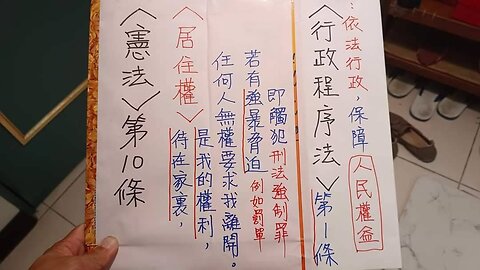 ：依法行政，保障人民權益
〈行政程序法〉第1條
即觸犯刑法強制罪
例如罰單
若有強暴脅迫
任何人無權要求我離開。
是我的權利，
待在家裏，
〈居住權〉
〈憲法〉第10條